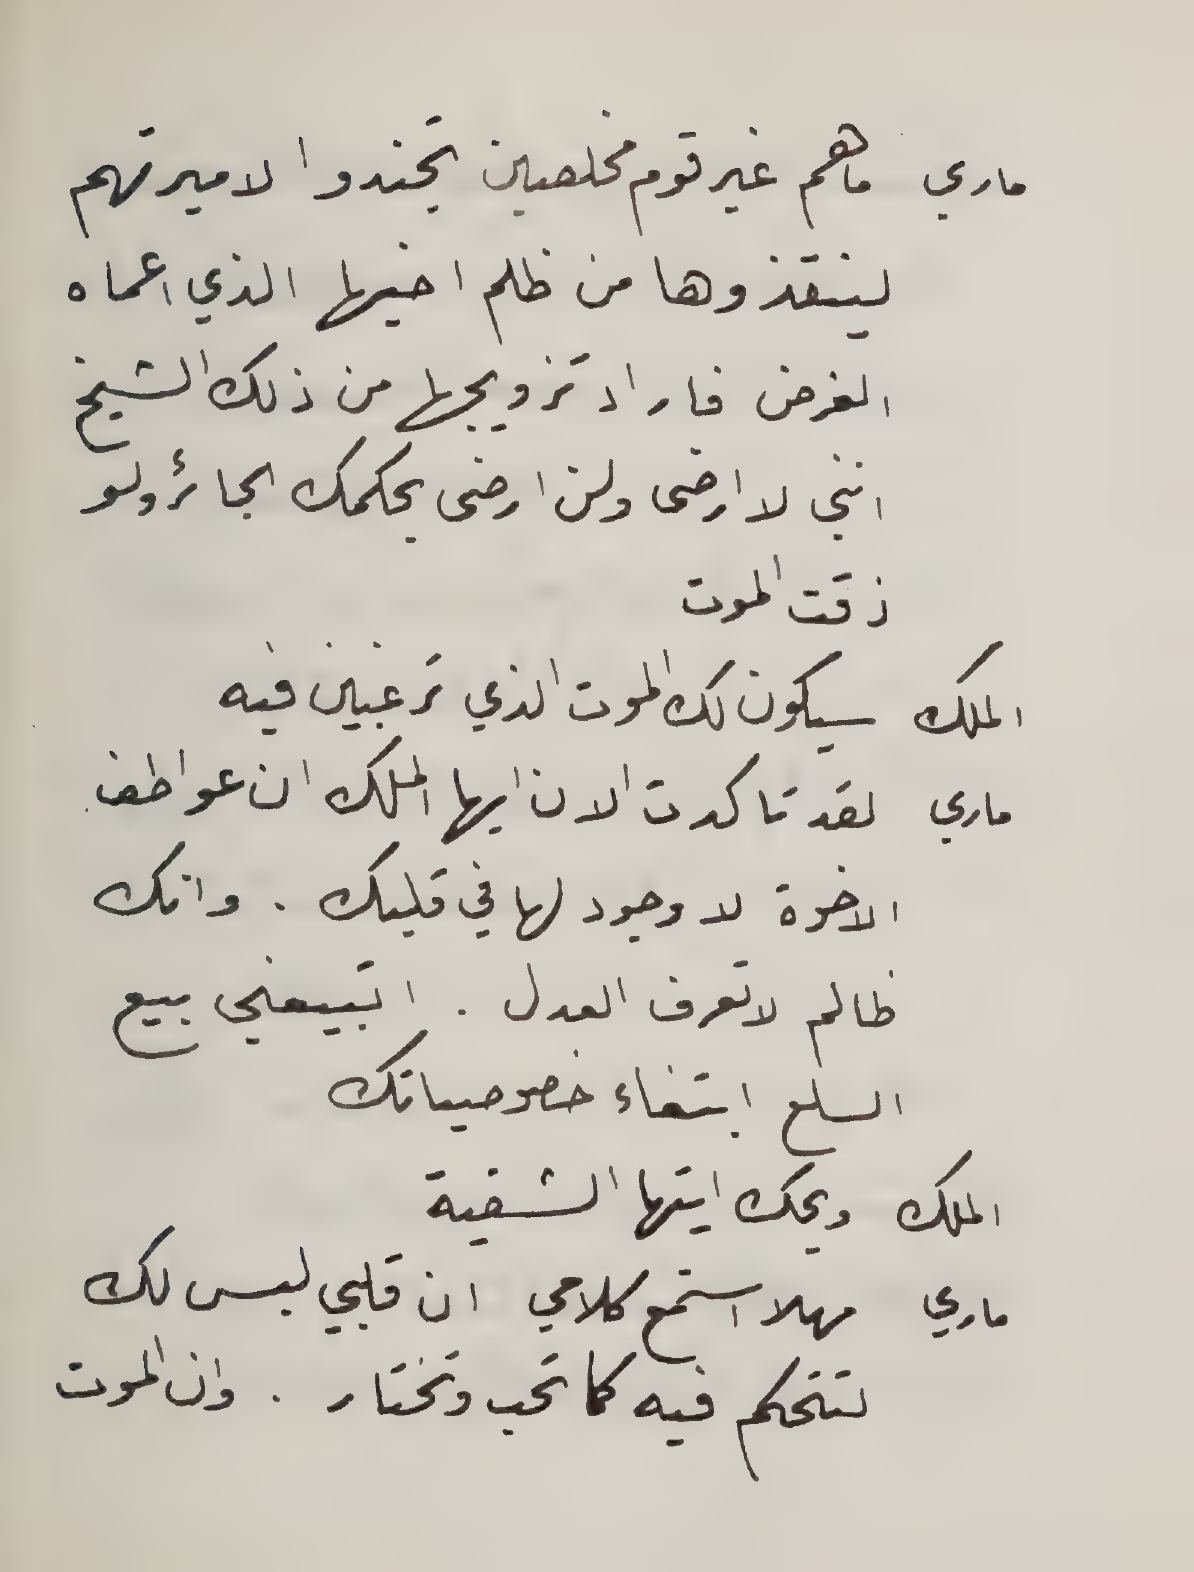 ماري ماهم غير قوم مخلصين تجندوا لاميرتهم
لينقذوها من ظلم اخيها الذي اعماه
الغرض فاراد تزويجها من ذلك الشيخ
انني لا ارضى ولن ارضى بحكمك الجائر ولو
ذقت الموت
الملك سيكون لك الموت الذي ترغبين فيه
ماري لقد تاكدت الان ايها الملك ان عواطف
الاخوة لا وجود لها في قلبك . وانك
ظالم لا تعرف العدل . اتبيعني بيع
السلع ابتغاء خصوصياتك
الملك ويحك ايتها الشقية
ماري مهلا استمع كلامي ان قلبي ليس لك
لتتحكم فيه كما تحب وتختار . وان الموت